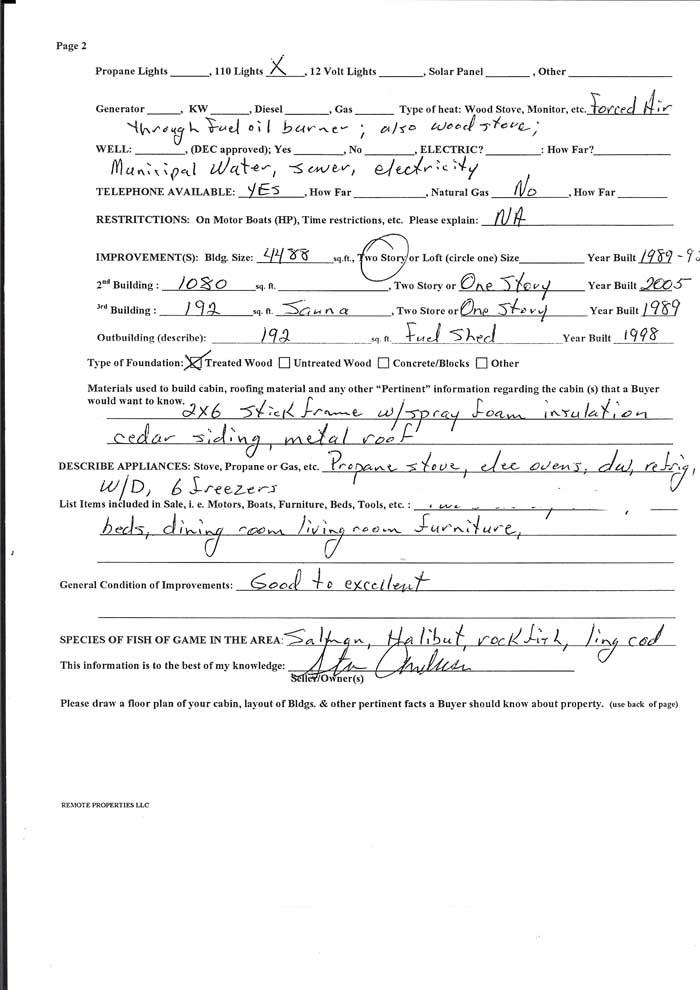 Page 2
Propane Lights ______, 110 Lights X, 12 Volt Lights ______, Solar Panel ______, Other ______
Generator ______, KW ______, Diesel ______, Gas ______ Type of heat: Wood Stove, Monitor, etc. Forced Air
through fuel oil burner; also wood stove;
WELL: ______, (DEC approved); Yes ______, No ______, ELECTRIC? ______: How Far? ______
Municipal Water, sewer, electricity
TELEPHONE AVAILABLE: YES, How Far ______, Natural Gas No, How Far ______
RESTRITCTIONS: On Motor Boats (HP), Time restrictions, etc. Please explain: NA
IMPROVEMENT(S): Bldg. Size: 4488 sq.ft., Two Story or Loft (circle one) Size ______ Year Built 1989-92
2nd Building : 1080 sq. ft. ______, Two Story or One Story Year Built 2005
3rd Building : 192 sq. ft. Sauna, Two Store or One Story Year Built 1989
Outbuilding (describe): 192 sq. ft. Fuel Shed Year Built 1998
Type of Foundation: ☒ Treated Wood ☐ Untreated Wood ☐ Concrete/Blocks ☐ Other
Materials used to build cabin, roofing material and any other “Pertinent” information regarding the cabin (s) that a Buyer
would want to know. 2x6 stick frame w/spray foam insulation
cedar siding, metal roof
DESCRIBE APPLIANCES: Stove, Propane or Gas, etc. Propane stove, elec ovens, dw, refrig,
W/D, 6 freezers
List Items included in Sale, i. e. Motors, Boats, Furniture, Beds, Tools, etc. :
beds, dining room living room furniture,
General Condition of Improvements: Good to excellent
SPECIES OF FISH OF GAME IN THE AREA: Salmon, Halibut, rockfish, ling cod
This information is to the best of my knowledge:
Seller/Owner(s)
Please draw a floor plan of your cabin, layout of Bldgs. & other pertinent facts a Buyer should know about property. (use back of page)
REMOTE PROPERTIES LLC